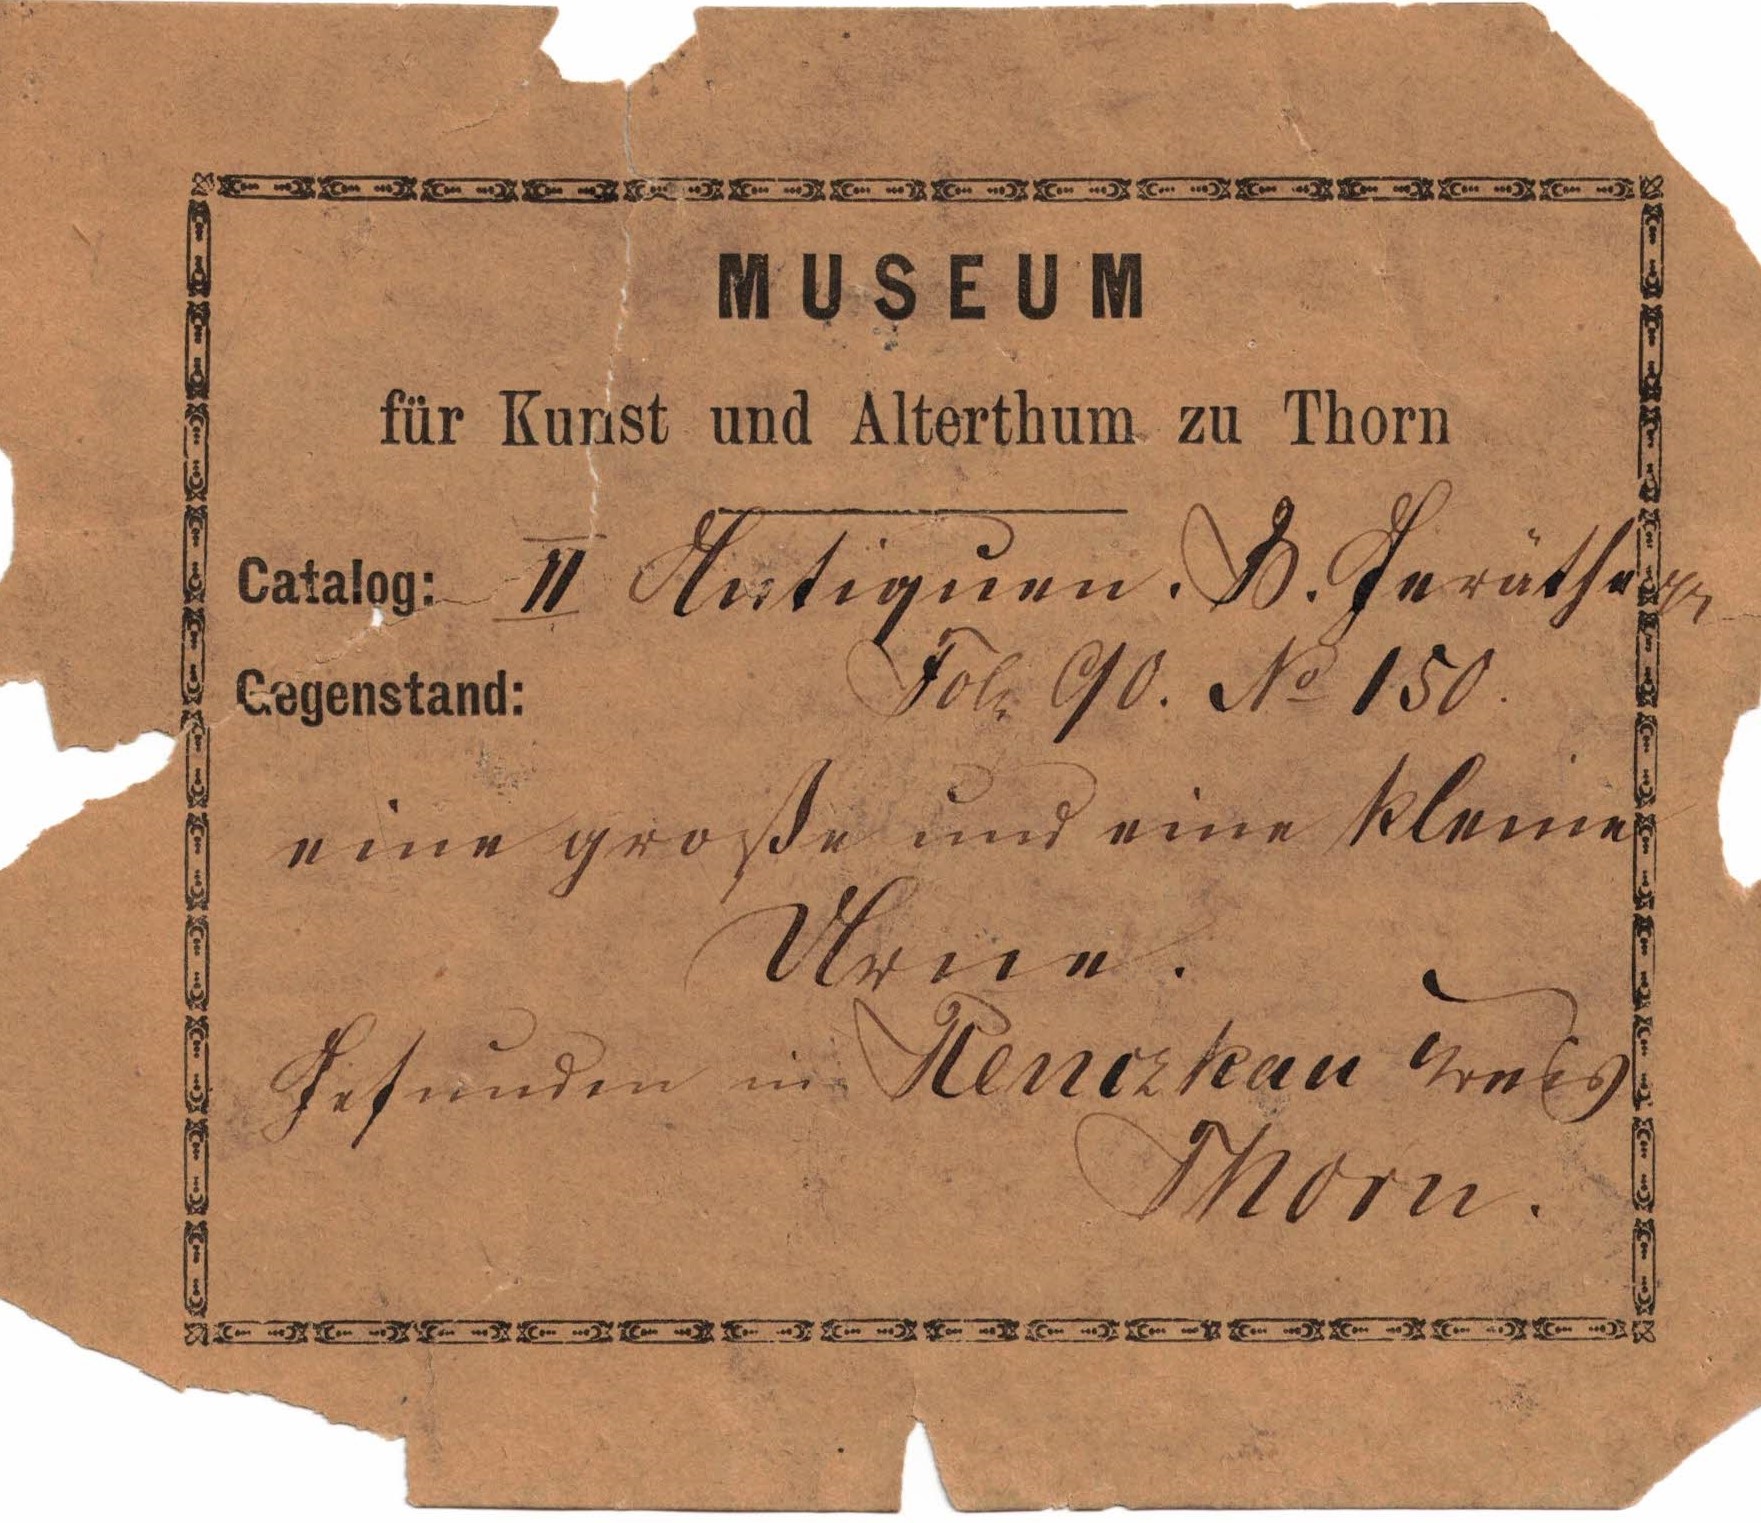 MUSEUM
für Kunst und Alterthum zu Thorn
Catalog: II Antiquen. B. Geräthe
Gegenstand: Fol. 90. No 150.
eine große und eine kleine
Urne.
Gefunden in Renczkau Kreis
Thorn.